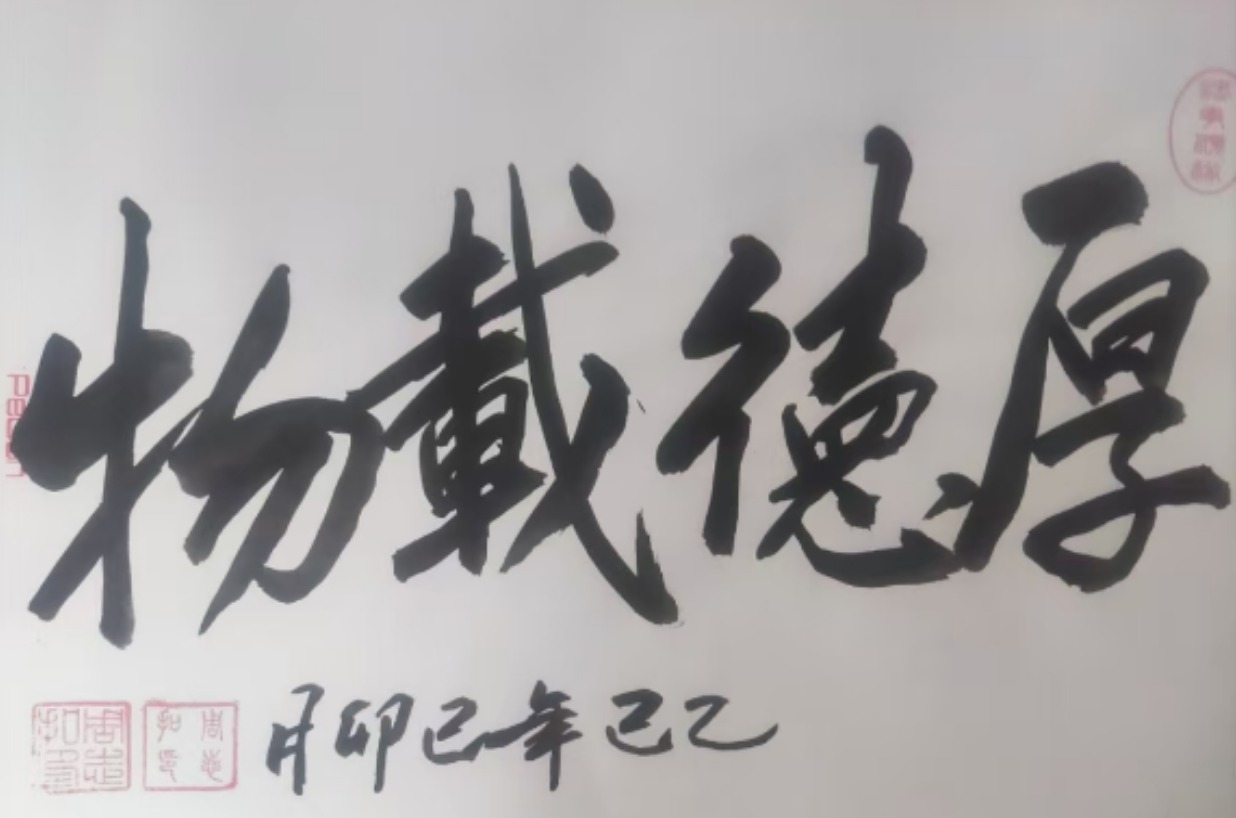 厚德載物
乙巳年己卯月